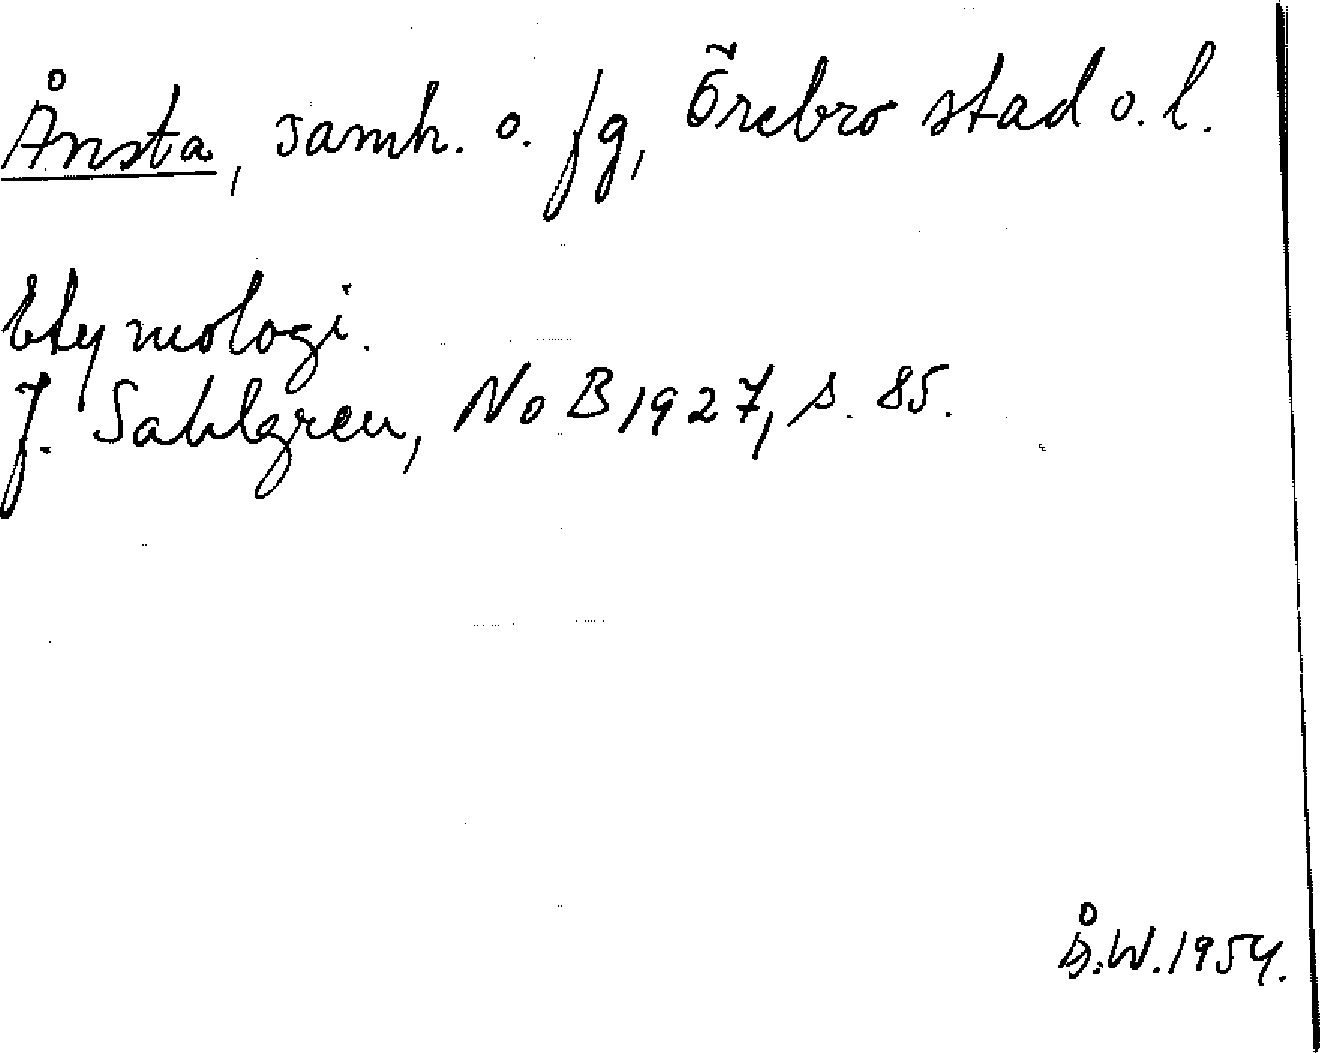 Ånsta, samh. o. fg, Örebro stad o. l.
Etymologi.
J. Sahlgren, NoB 1927, s. 85.
Å.W. 1954.